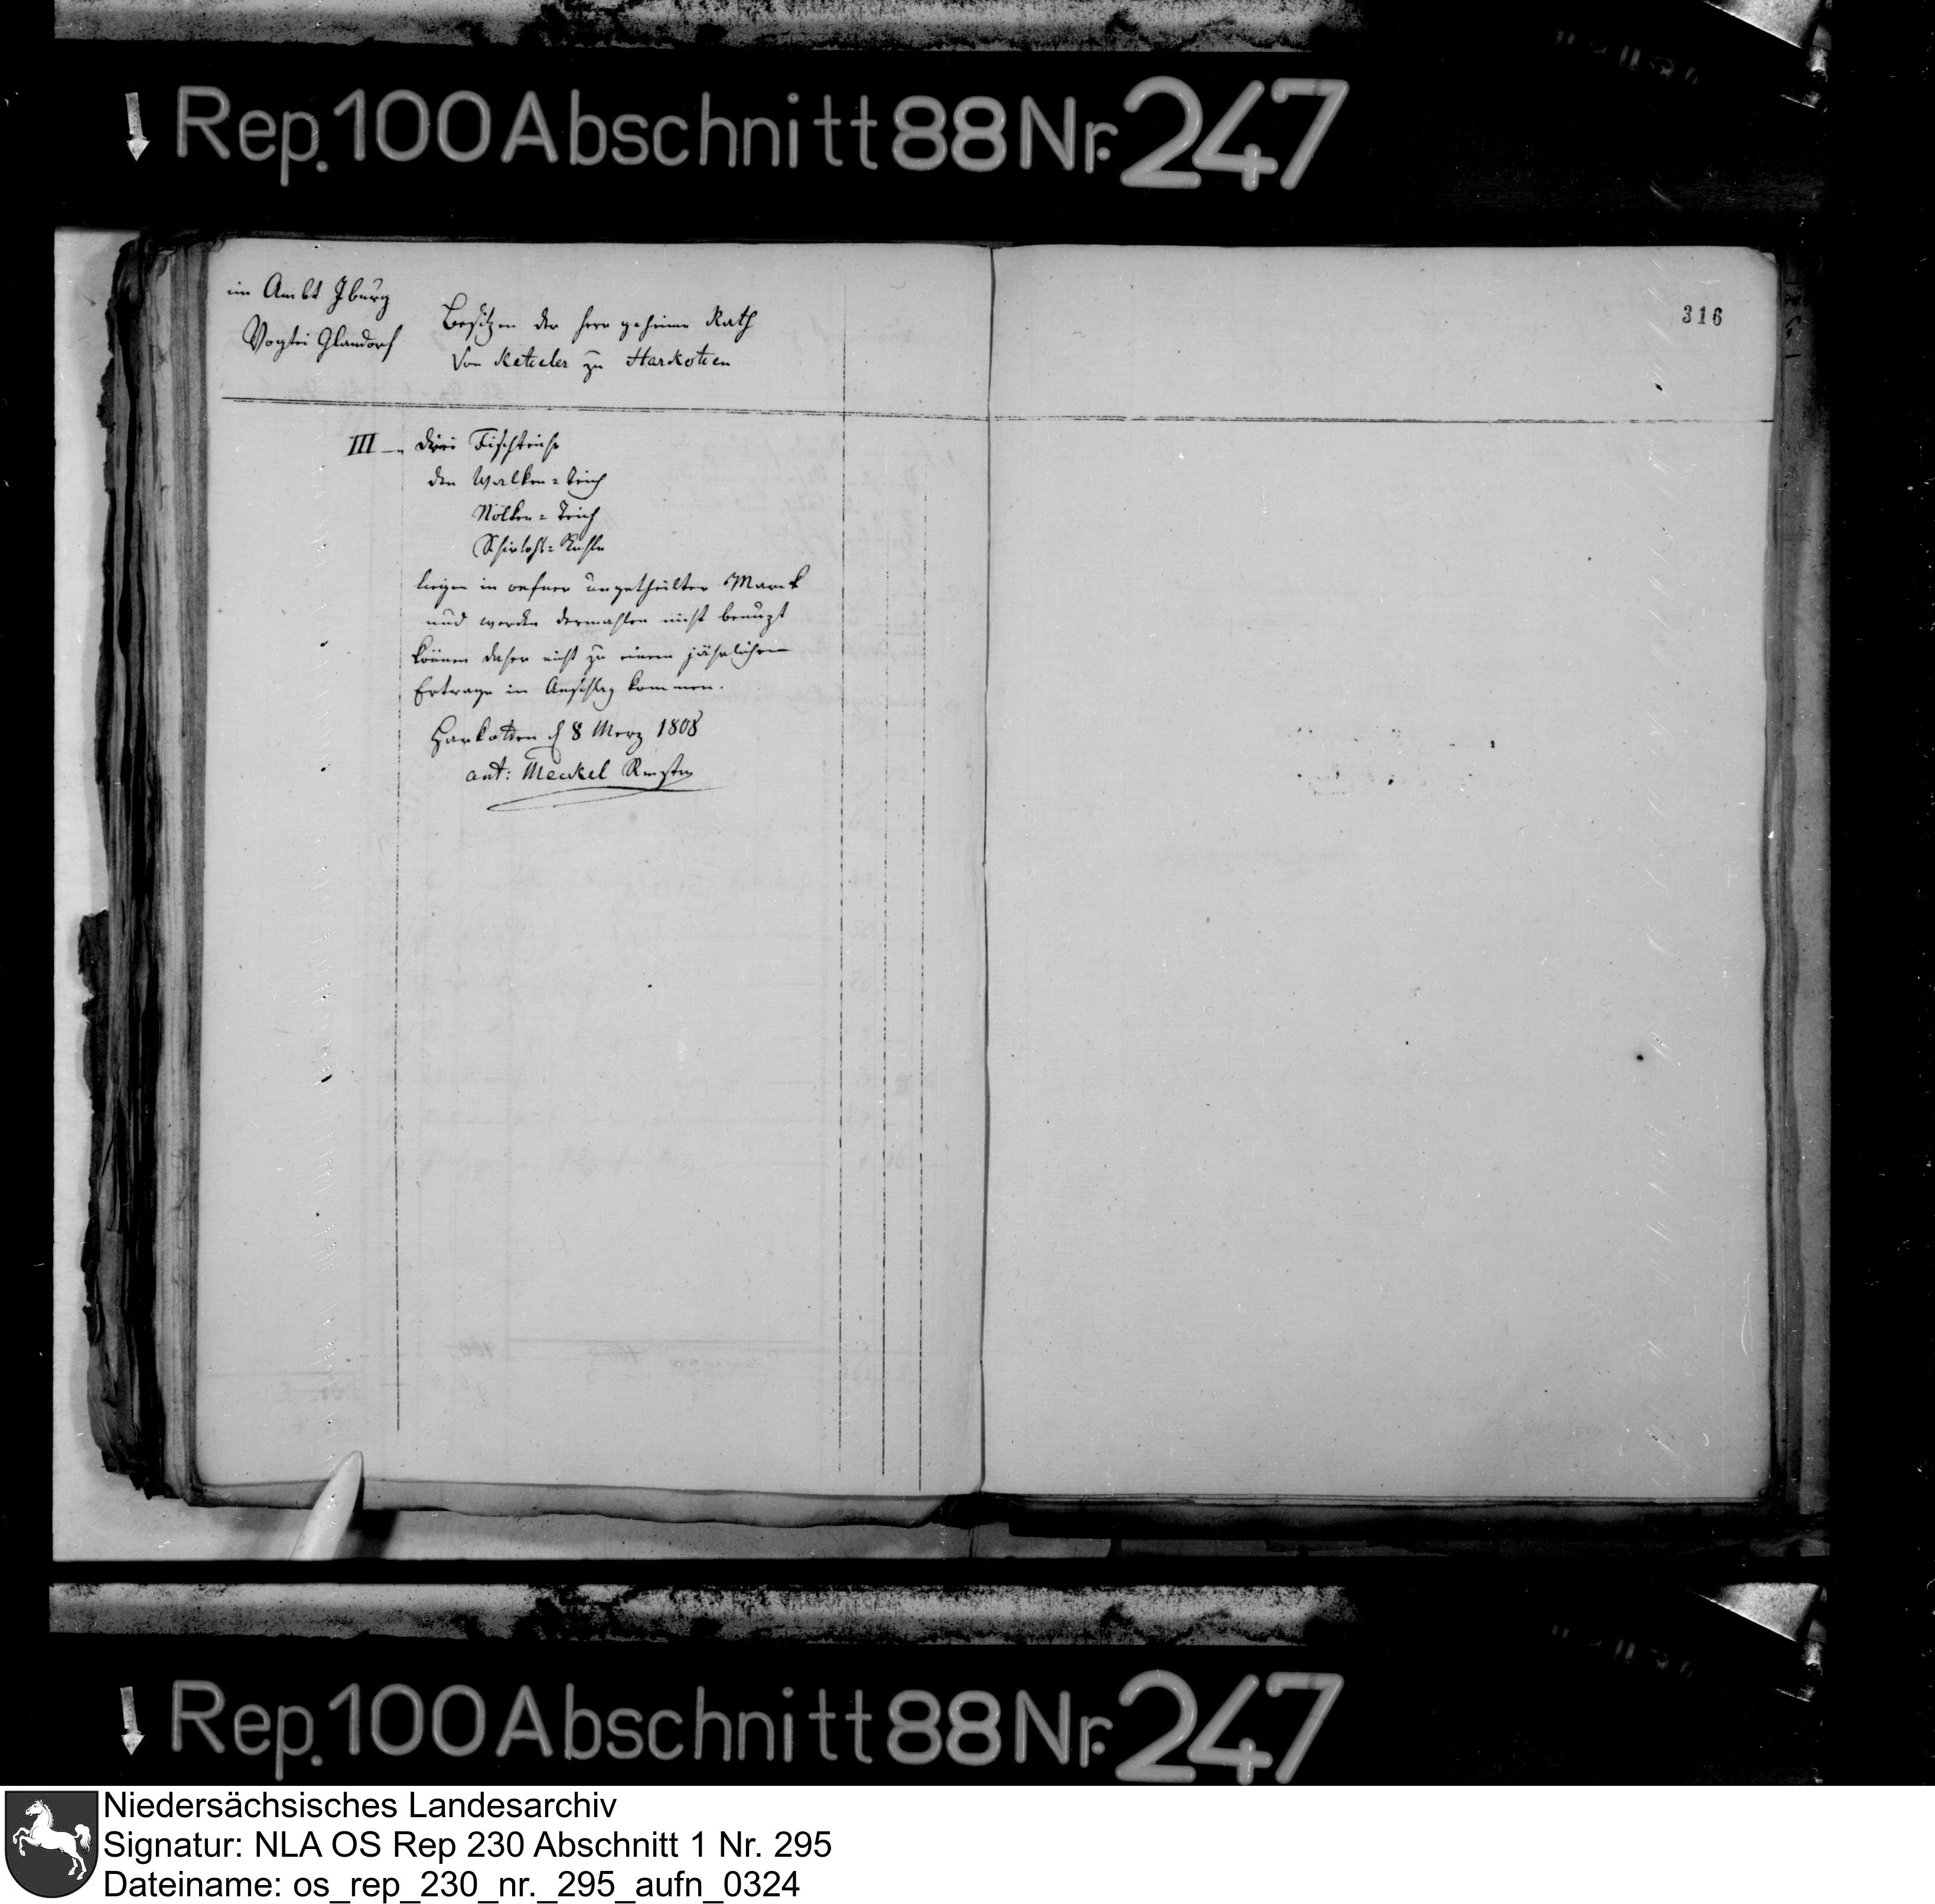 Rep. 100 Abschnitt 88 Nr. 247
im Ambt Iburg
Vogtei Glandorf
Besitzen der Herr geheime Rath
von Ketteler zu Harkotten
316
III drei Fischteiche
den Walken-Teich
Nölken-Teich
Kuhle
liegen in offner ungetheilter Marck
und werden dermahlen nicht benuzt
können daher nicht zu einem jährlichen
Ertrage in Anschlag kommen.
Harkotten d 8 Merz 1808
Meckel Rmstr
Rep. 100 Abschnitt 88 Nr. 247
Niedersächsisches Landesarchiv
Signatur: NLA OS Rep 230 Abschnitt 1 Nr. 295
Dateiname: os_rep_230_nr._295_aufn_0324